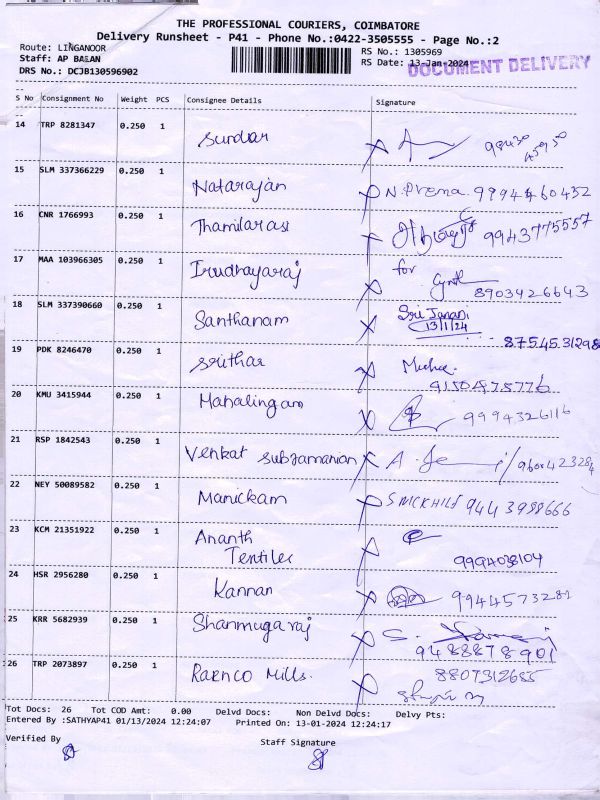 THE PROFESSIONAL COURIERS, COIMBATORE
Delivery Runsheet - P41 - Phone No.:0422-3505555 - Page No.:2
Route: LINGANOOR RS No.: 1305969
Staff: AP BALAN RS Date: 13-Jan-2024
DRS No.: DCJB130596902 DOCUMENT DELIVERY
S No Consignment No Weight PCS Consignee Details Signature
14 TRP 8281347 0.250 1 Sundar
15 SLM 337366229 0.250 1 Natarajan N. Prema. 9994460432
16 CNR 1766993 0.250 1 Thamilarasi 9943775557
17 MAA 103966305 0.250 1 Irudhayaraj for
8903426643
18 SLM 337390660 0.250 1 Santhanam Sri Janani
13/1/24
87545.31298
19 PDK 8246470 0.250 1 Srithar
20 KMU 3415944 0.250 1 Mahalingam 9994326116
21 RSP 1842543 0.250 1 Venkat Subramanian
22 NEY 50089582 0.250 1 Manickam 9443988666
23 KCM 21351922 0.250 1 Ananth
Textiles 9994038104
24 HSR 2956280 0.250 1 Kannan 9944573281
25 KRR 5682939 0.250 1 Shanmugaraj S.
9488878901
26 TRP 2073897 0.250 1 Raenco Mills. 8807312685
Tot Docs: 26 Tot COD Amt: 0.00 Delvd Docs: Non Delvd Docs: Delvy Pts:
Entered By :SATHYAP41 01/13/2024 12:24:07 Printed On: 13-01-2024 12:24:17
Verified By Staff Signature